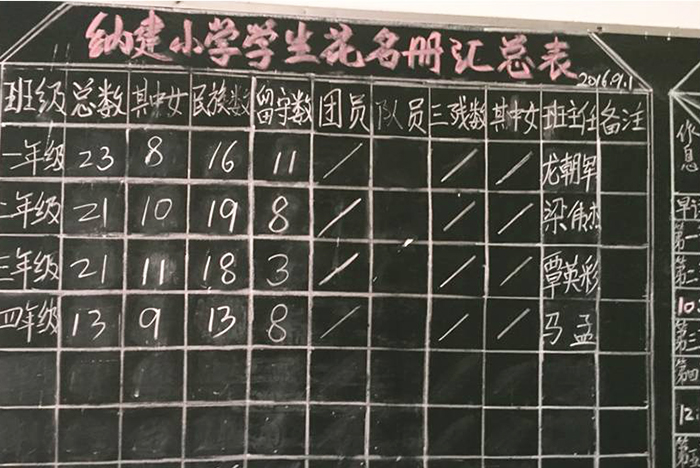 纳建小学学生花名册汇总表
2016.9.1
班级 总数 其中女 民族数 留守数 团员 队员 三残数 其中女 班主任 备注
一年级 23 8 16 11 / / / 龙朝军
二年级 21 10 19 8 / / / 梁伟杰
三年级 21 11 18 3 / / / 覃英彩
四年级 13 9 13 8 / / / 马孟
作息
早读
第一
第二
10
第三
第四
12